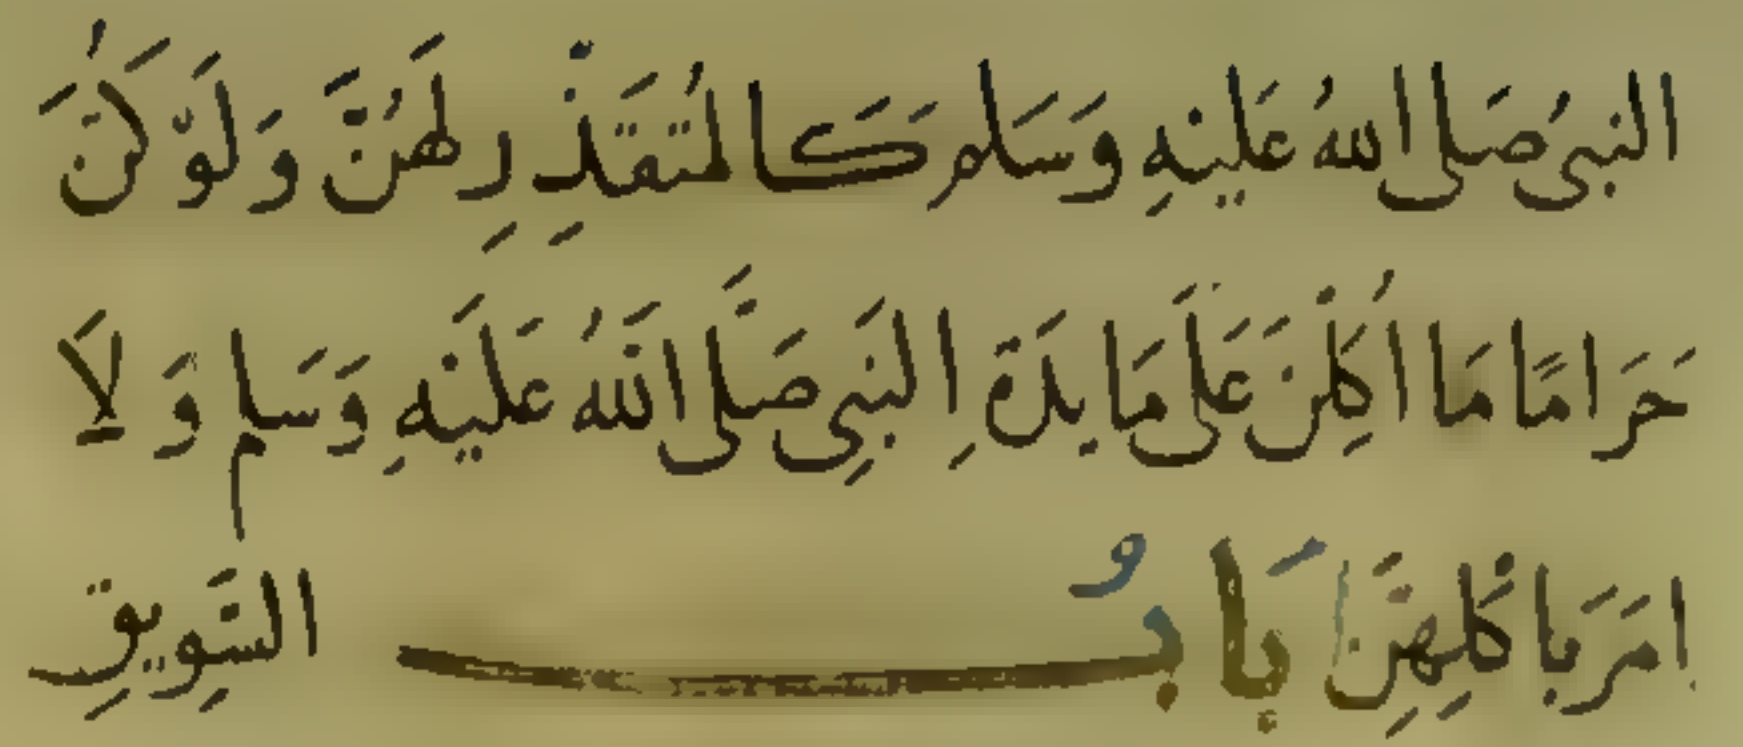 النبىُ صَلى اللهُ عَليْهِ وَسَلم كَالمُتَقَذِّرِ لَهُنَّ وَلَوْ كُنَّ
حَرَامًا مَا أُكِلْنَ عَلَى مَايِدَةِ النَبِىِ صَلَّى اللَّهُ عَلَيْهِ وَسَلم وَلَا
امَرَ بِأَكْلِهِنَّ بَابُ السَّوِيقِ